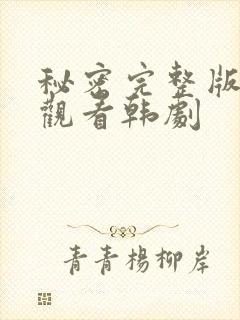 秘密完整版
觀看韩劇
青青楊柳岸